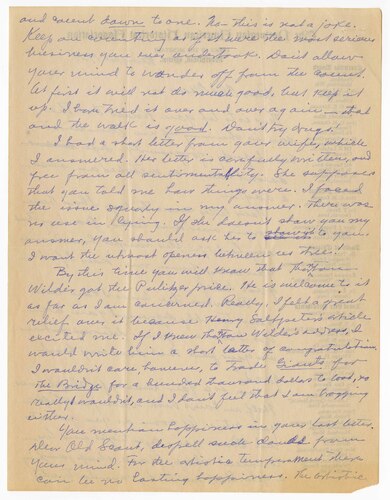 and count down to one. No - this is not a joke.
Keep on counting as if it were the most serious
business you ever undertook. Don't allow
your mind to wander off from the count.
At first it will not do much good, but keep it
up. I have tried it over and over again - that
and the walk is good. Don't try drugs!
I had a short letter from your wife, which
I answered. Her letter is carefully written, and
free from all sentimentality. She supposes
that you told me how things were. I faced
the issue squarely in my answer. There was
no use in lying. If she doesn't show you my
answer, you should ask her to show it to you.
I want the utmost openness between us three!
By this time you will know that Thornton
Wilder got the Pulitzer price. He is welcome to it
as far as I am concerned. Really, I felt a great
relief over it because Henry Salpeter's article
excited me. If I knew Thornton Wilder's address, I
would write him a short letter of congratulation.
I wouldn't care, however, to trade Giants for
The Bridge for a hundred thousand dollars to boot, no
really I wouldn't, and I don't feel that I am bragging
either.
You mention happiness in your last letter.
Dear Old Scout, dispell such clouds from
your mind. For the artistic temperament there
can be no lasting happiness. The artistic